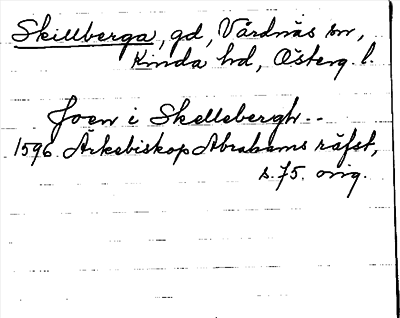 Skillberga, gd, Vårdnäs sn,
Kinda hd, Österg. l.
Joen i Skellebergh..
1596. Ärkebiskop Abrahams räfst,
s. 75. orig.